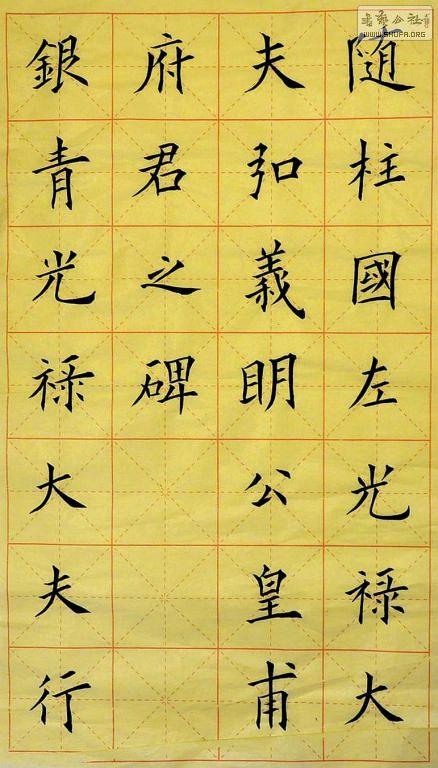 隨柱國左光祿大
夫弘義明公皇甫
府君之碑
銀青光祿大夫行
書艺公社
WWW.SHUFA.ORG